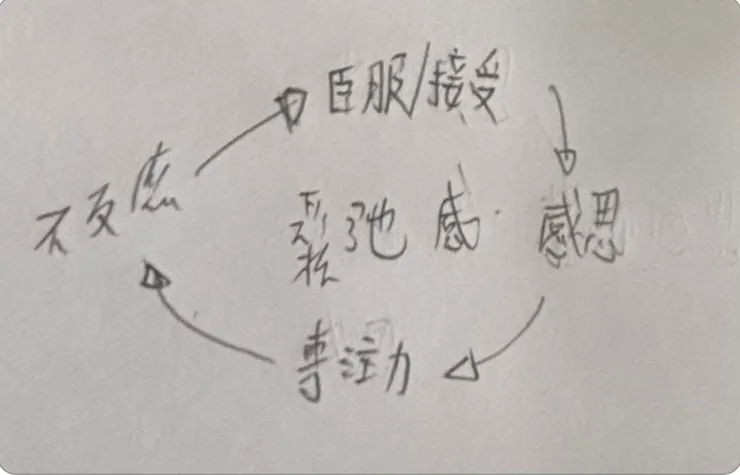 臣服/接受
不反應
鬆弛感
感恩
專注力